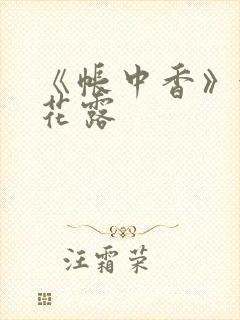 《帐中香》
花露
汪霜荣